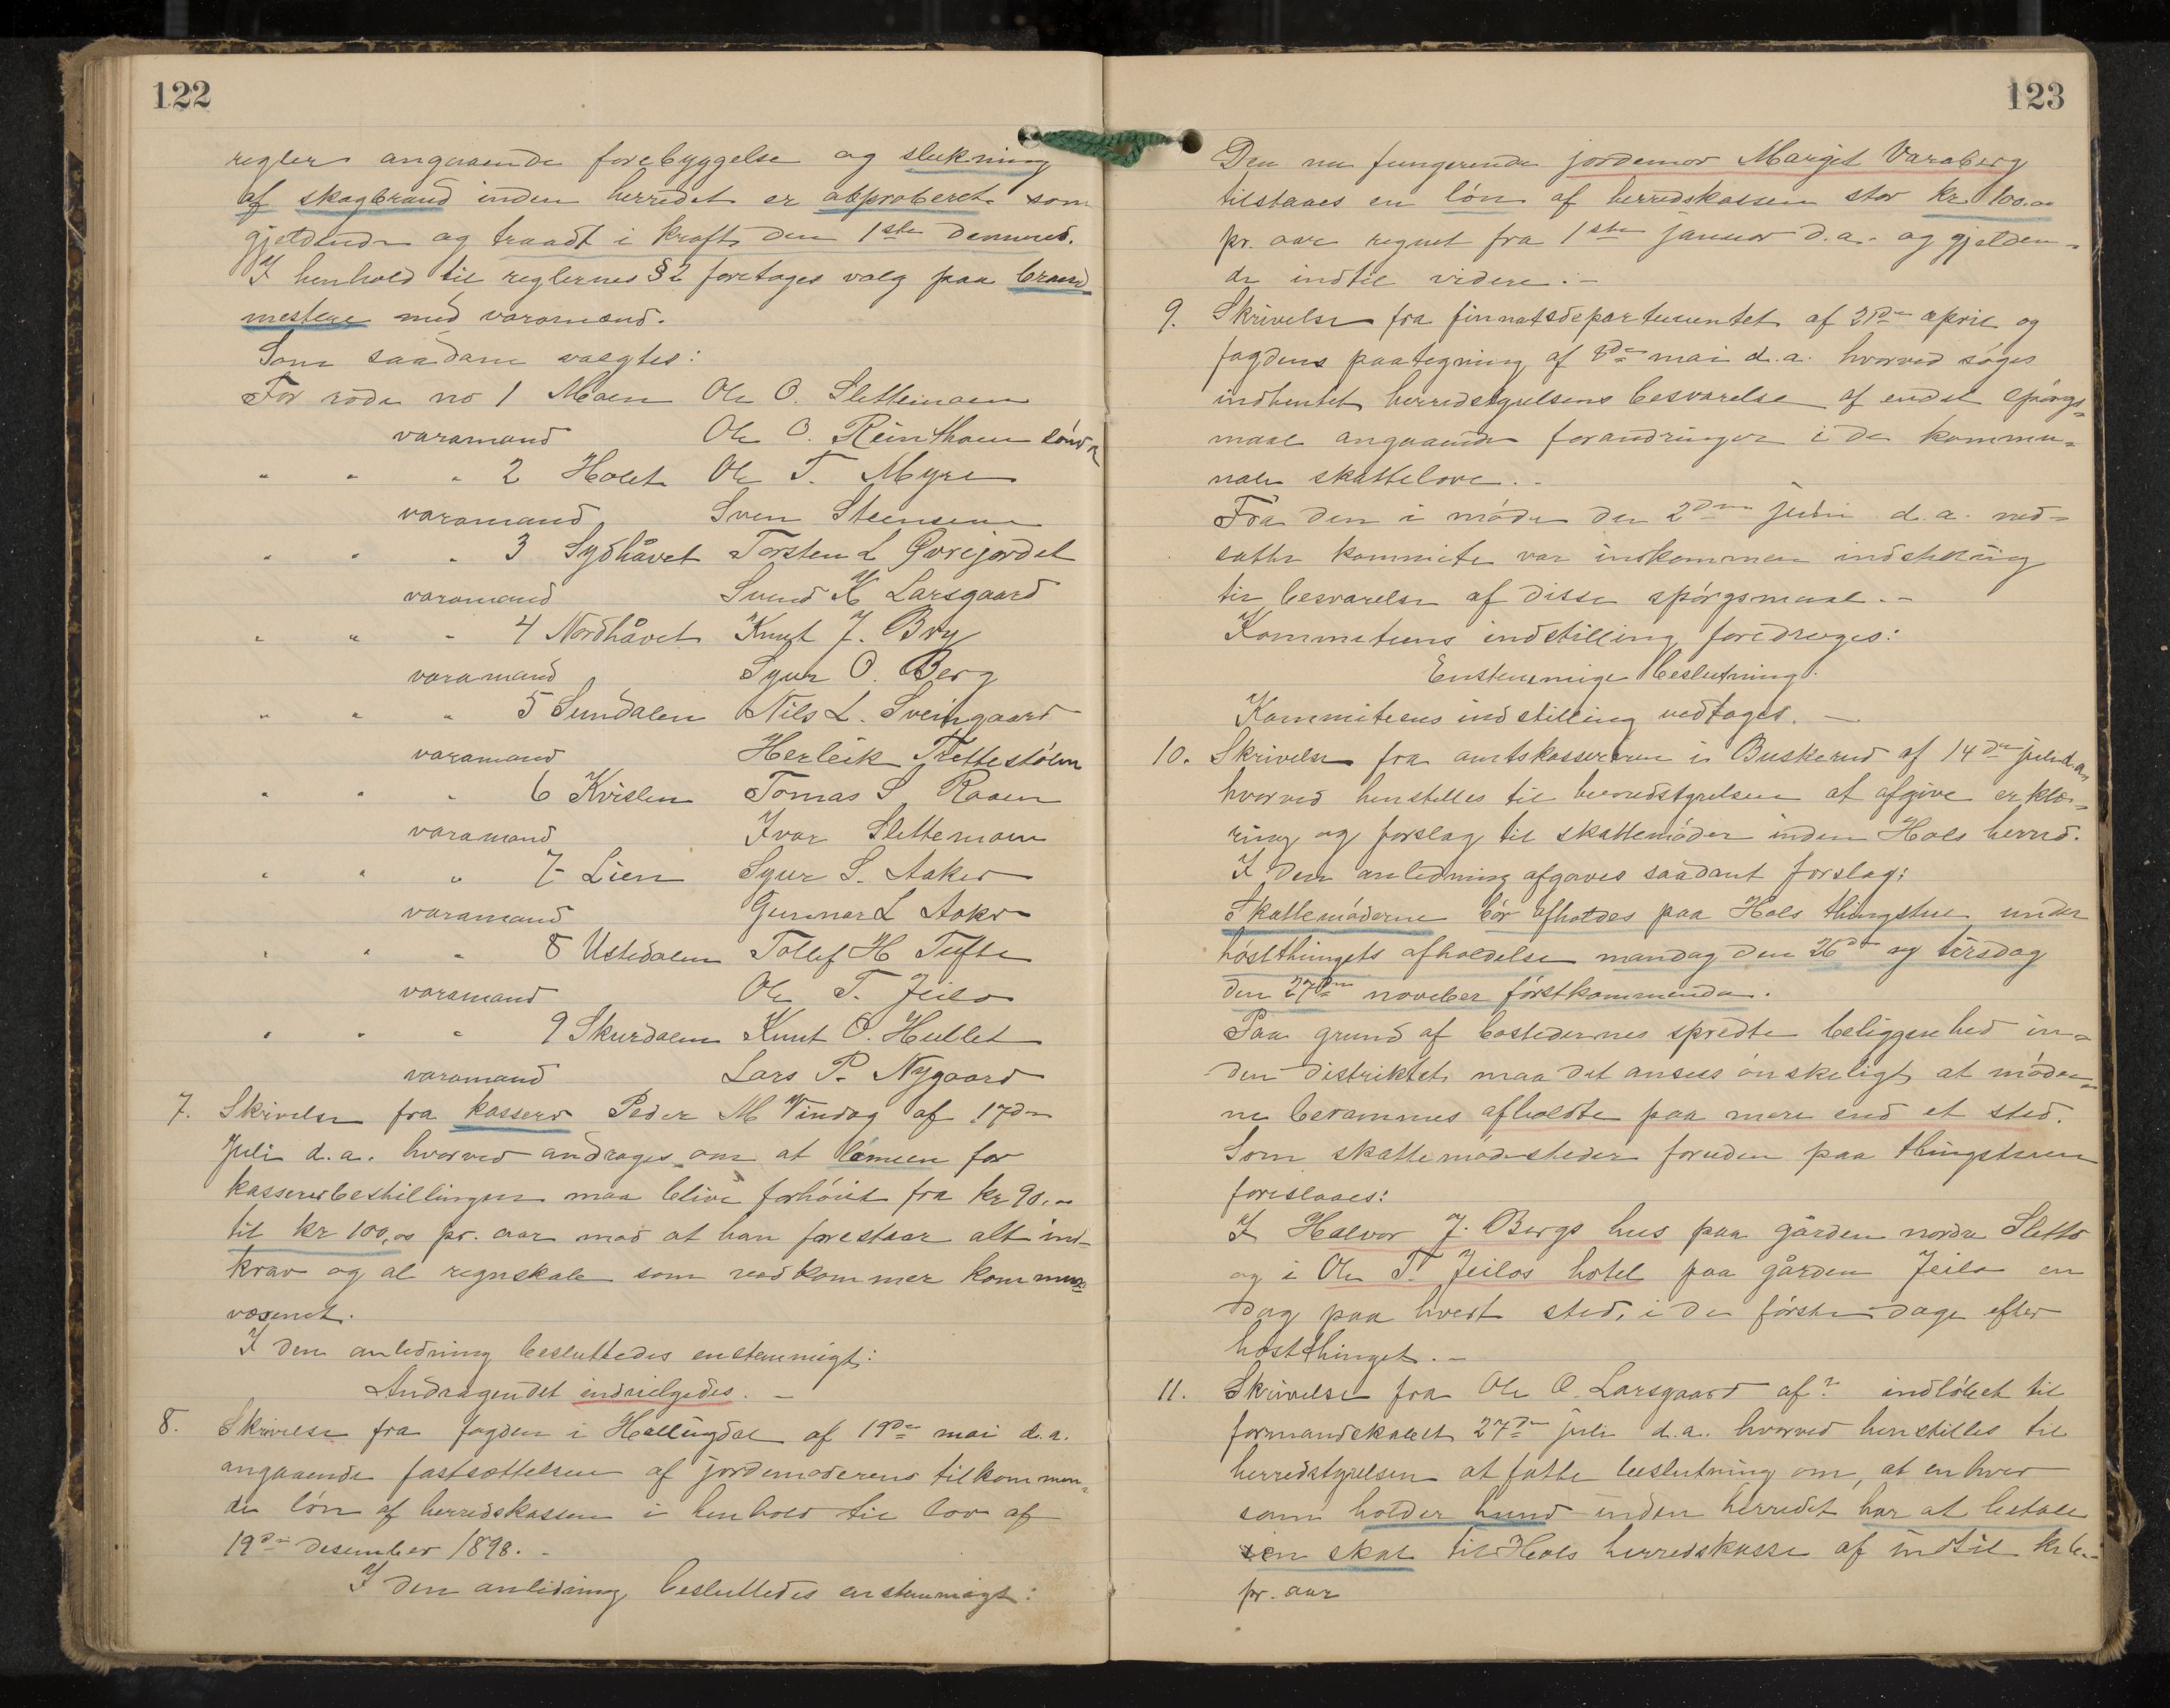 122
regler angaaende forebyggelse og slukning
af skogbrand inden herredet er approberet som
gjeldende og traadt i kraft den 1ste dennes.
I henhold til reglernes § 2 foretages valg paa brand
mestere med varamænd.
Som saadane valgtes:
For rode no 1 Moen Ole O. Slettemoen
varamand Ole O. Reinthon søndre
" " " 2 Holet Ole T. Myre
varamand Sven Steensen
" " " 3 Sydhåvet Torsten L Øvrejordet
varamand Svend K Larsgaard
" " " 4 Nordhåvet Knut J. Bry
varamand Sjur O. Berg
" " " 5 Sundalen Nils L. Sveingaard
varamand Herleik Trettestølen
" " " 6 Kvislen Tomas S Raaen
varamand Ivar Slettemoen
" " " 7 Lien Sjur S. Aaker
varamand Gunnar L Aaker
" " " 8 Ustedalen Tollef H Tufte
varamand Ole T. Jeilo
" " " 9 Skurdalen Knut O. Hullet
varamand Lars P. Nygaard
7. Skrivelse fra kasserer Peder M Vindag af 17de
Juli d.a. hvorved andrages om at lønnen for
kassererbestillingen maa blive forhøiet fra kr 90.00
til kr 100,00 pr. aar mod at han forestaar alt ind-
krav og al regnskab som vedkommer kommune
væsenet.
I den anledning besluttedes enstemmigt:
Andragendet indvilgedes. –
8. Skrivelse fra fogden i Hallingdal af 19de mai d.a.
angaaende fastsættelsen af jordemoderens tilkommen-
de løn af herredskassen i henhold til lov af
19de desember 1898. -
I den anledning besluttedes enstemmigt:
123
Den nu fungerende jordemor Margit Varaberg
tilstaaes en løn af herredskassen stor kr 100.00
pr. aar regnet fra 1ste januar d.a. og gjelden-
de indtil videre. –
9. Skrivelse fra finnatsdepartementet af 2den april og
fogdens paategning af mai d.a. hvorved søges
indhentet herredstyrelsens besvarelse af endel spørgs-
maal angaaende forandringer i de kommu-
nale skattelove. -
Fra den i møde den 2den juli d.a. ned-
satte kommite var indkommen indstilling
til besvarelse af disse spørgsmaal. –
Kommiteens indstilling foredroges:
Enstemmige beslutning:
Kommiteens indstilling vedtages. –
10. Skrivelse fra amtskassereren i Buskerud af 14de juli d.a.
hvorved henstilles til herredstyrelsen at afgive erklæ-
ring og forslag til skattemøder inden Hols herred.
I den anledning afgaves saadant forslag:
Skattemøderne bør afholdes paa Hols thingstue under
høstthingets afholdelse mandag den 26de og tirsdag
den 27de november førstkommende.
Paa grund af bostedernes spredte beliggenhed in-
den distriktet maa det ansees ønskeligt at møder-
ne berammes afholdte paa mere end et sted.
Som skattemødesteder foruden paa thingstuen
foreslaaes:
I Halvor J. Bergs hus paa gården nordre Sletto
og i Ole T. Jeilos hotel paa gården Jeilo en
dag paa hvert sted, i de første dage efter
høstthinget. –
11. Skrivelse fra Ole O. Larsgaard af ? indløbet til
formandskabet 27de juli d.a. hvorved henstilles til
herredstyrelsen at fatte beslutning om, at enhver
som holder hund inden herredet har at betale
en skat til Hols herredskasse af indtil kr 6.-
pr. aar